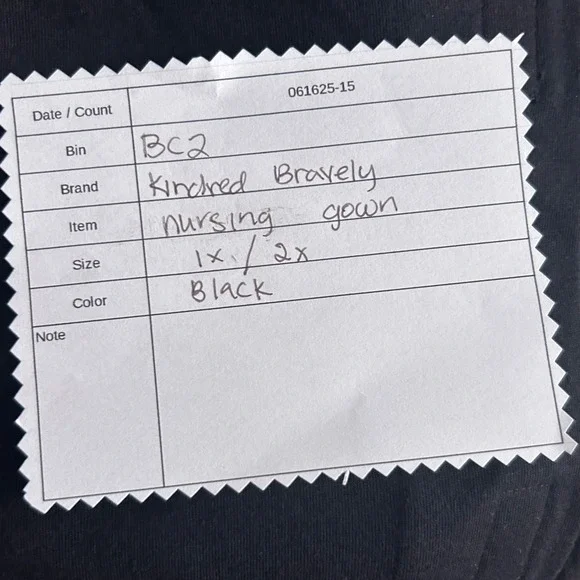 Date / Count 061625-15
Bin BC2
Brand Kindred Bravely
Item nursing gown
Size 1x / 2x
Color Black
Note